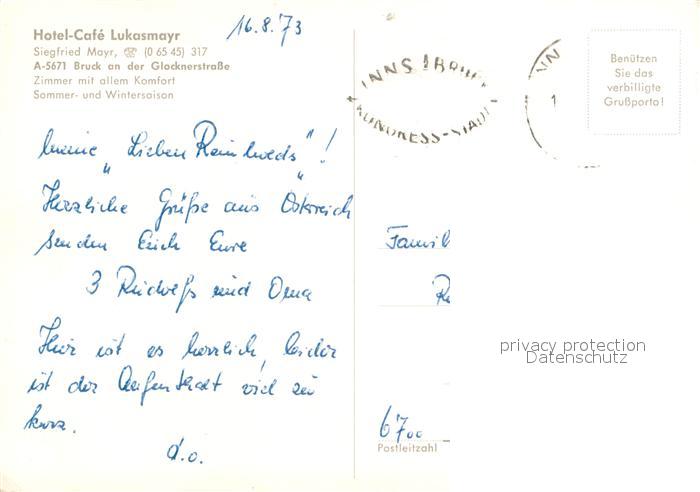 16.8.73
Hotel-Café Lukasmayr
Siegfried Mayr, ☎ (0 65 45) 317
A-5671 Bruck an der Glocknerstraße
Zimmer mit allem Komfort
Sommer- und Wintersaison
Meine „Lieben Reinhweds"!
Herzliche Grüße aus Österreich
senden Euch Eure
3 und Oma
Hier ist es herrlich, leider
ist der Aufenthalt viel zu
kurz.
d.o.
INNSBRUCK
KONGRESS-STADT
INN
1
Benützen
Sie das
verbilligte
Grußporto!
Famil
R
6700
Postleitzahl
privacy protection
Datenschutz